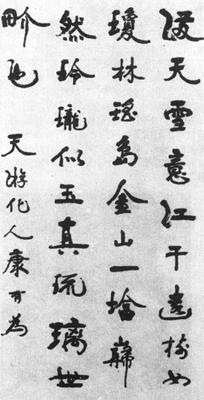 漫天雪意江干遠樹如
瓊林瑤島金山一塔巋
然玲瓏似玉真琉璃世
畍也 天游化人康有為